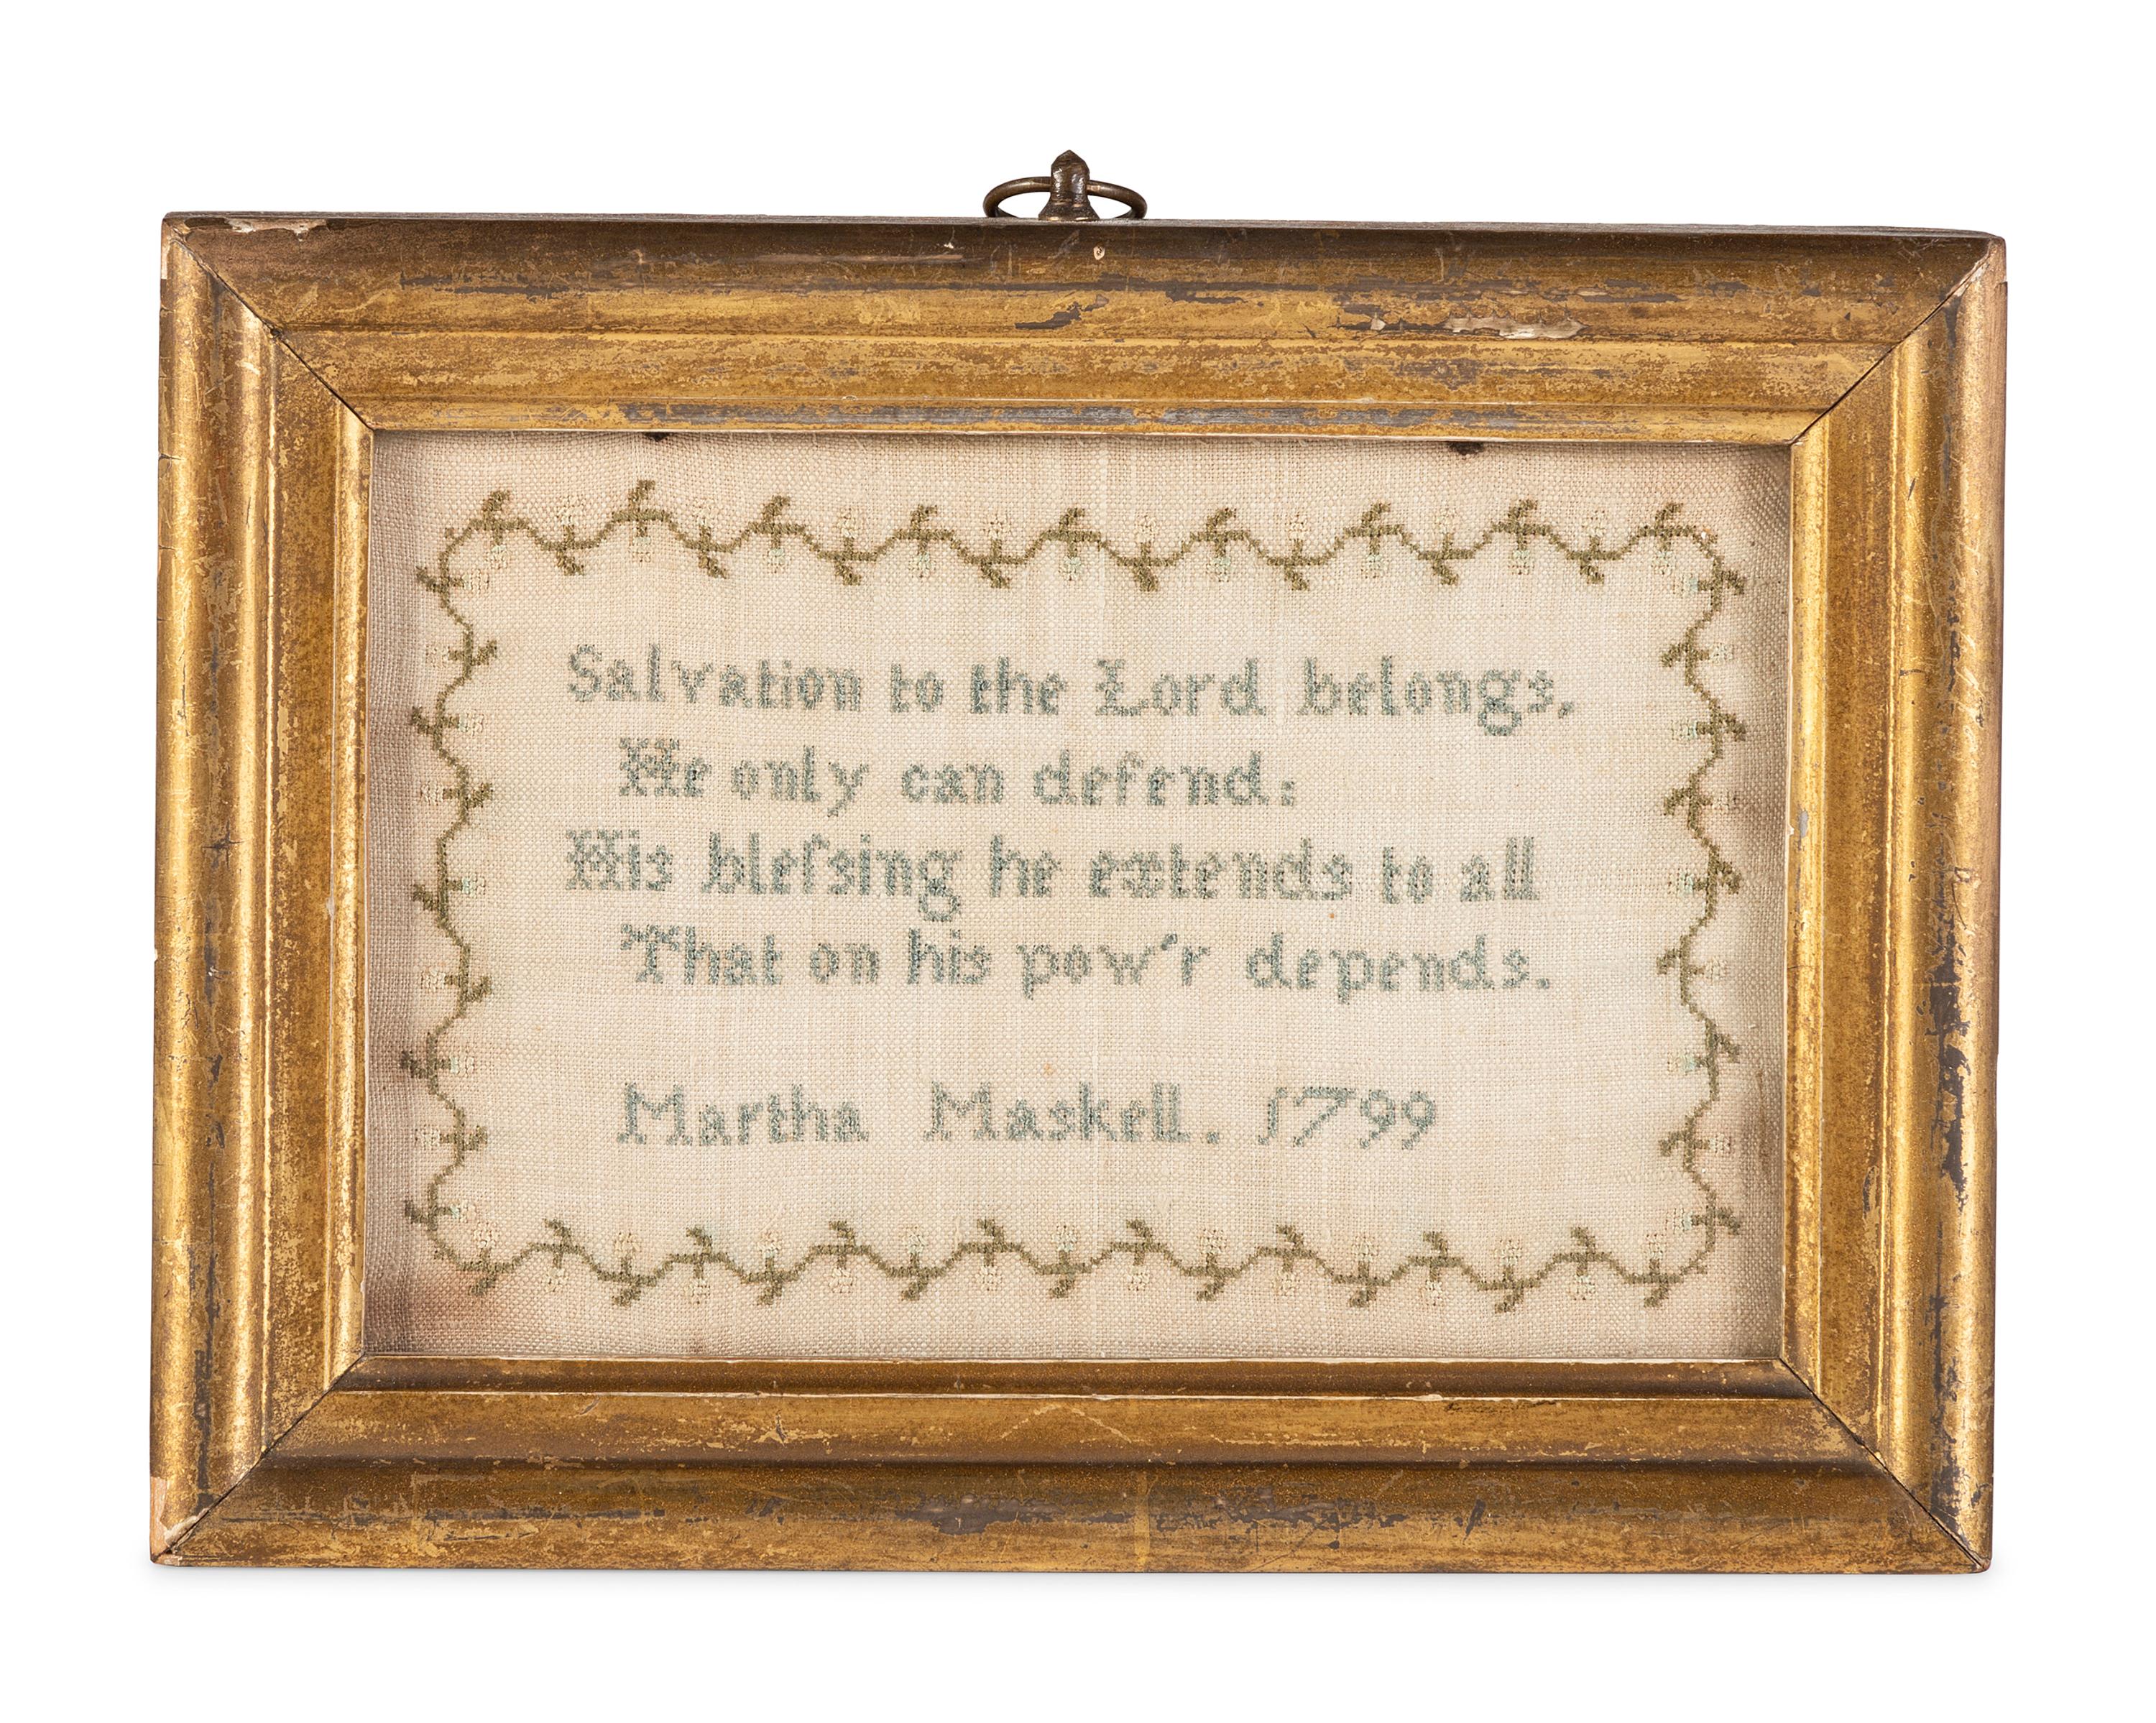 Salvation to the Lord belongs,
He only can defend:
His bleſsing he extends to all
That on his pow'r depends.
Martha Maskell. 1799